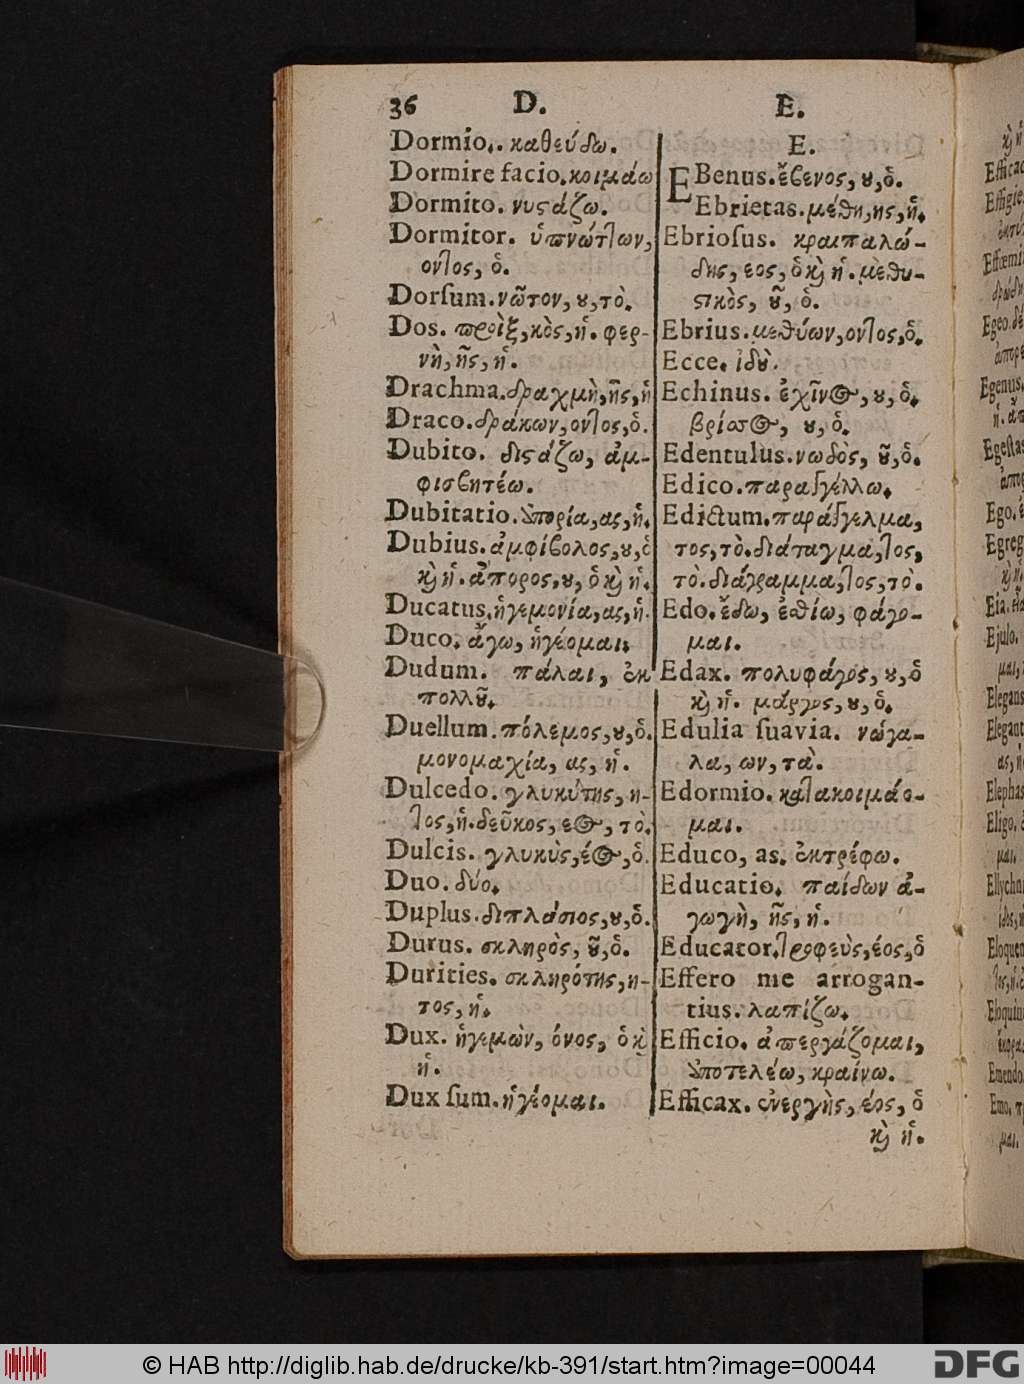 36 D. E.
Dormio. καθεύδω.
Dormire facio. κοιμάω
Dormito. νυστάζω.
Dormitor. ὑπνώτlων,
ονlος, ὁ.
Dorsum. νῶτον, ȣ, τὸ.
Dos. προὶξ, κὸς, ἡ. φερ-
νὴ, ῆς, ἡ.
Drachma. δραχμὴ, ῆς, ἡ
Draco. δράκων, ονlος, ὁ.
Dubito. διστάζω, ἀμ-
φισβητέω.
Dubitatio. ἀπορία, ας, ἡ.
Dubius. ἀμφίβολος, ȣ, ὁ
κὶ ἡ. ἄπορος, ȣ, ὁ κὶ ἡ.
Ducatus. ἡγεμονία, ας, ἡ.
Duco. ἄγω, ἡγέομαι.
Dudum. πάλαι, ἐκ
πολλȣ͂.
Duellum. πόλεμος, ȣ, ὁ.
μονομαχία, ας, ἡ.
Dulcedo. γλυκύτης, η-
τος, ἡ. δεῦκος, εος, τὸ.
Dulcis. γλυκὺς, έος, ὁ.
Duo. δύο.
Duplus. διπλάσιος, ȣ, ὁ.
Durus. σκληρὸς, ȣ͂, ὁ.
Durities. σκληρότης, η-
τος, ἡ.
Dux. ἡγεμὼν, όνος, ὁ κὶ
ἡ.
Dux sum. ἡγέομαι.
E.
EBenus. ἔβενος, ȣ, ὁ.
Ebrietas. μέθη, ης, ἡ.
Ebriosus. κραιπαλώ-
δης, εος, ὁ κὶ ἡ. μεθυ-
στικὸς, ȣ͂, ὁ.
Ebrius. μεθύων, ονlος, ὁ.
Ecce. ἰδȣ̀.
Echinus. ἐχῖνος, ȣ, ὁ.
βρίσος, ȣ, ὁ.
Edentulus. νωδὸς, ȣ͂, ὁ.
Edico. παραγγέλλω.
Edictum. παράγγελμα,
τος, τὸ. διάταγμα, τος,
τὸ. διάγραμμα, τος, τὸ.
Edo. ἔδω, ἐσθίω, φάγο-
μαι.
Edax. πολυφάγος, ȣ, ὁ
κὶ ἡ. μάργος, ȣ, ὁ.
Edulia suavia. νώγα-
λα, ων, τὰ.
Edormio. καlακοιμάο-
μαι.
Educo, as. ἐκτρέφω.
Educatio. παίδων ἀ-
γωγὴ, ῆς, ἡ.
Educator. τροφεὺς, έος, ὁ
Effero me arrogan-
tius. λαπίζω.
Efficio. ἀπεργάζομαι,
ὑποτελέω, κραίνω.
Efficax. ἐνεργὴς, έος, ὁ
κὶ ἡ.
© HAB http://diglib.hab.de/drucke/kb-391/start.htm?image=00044
DFG